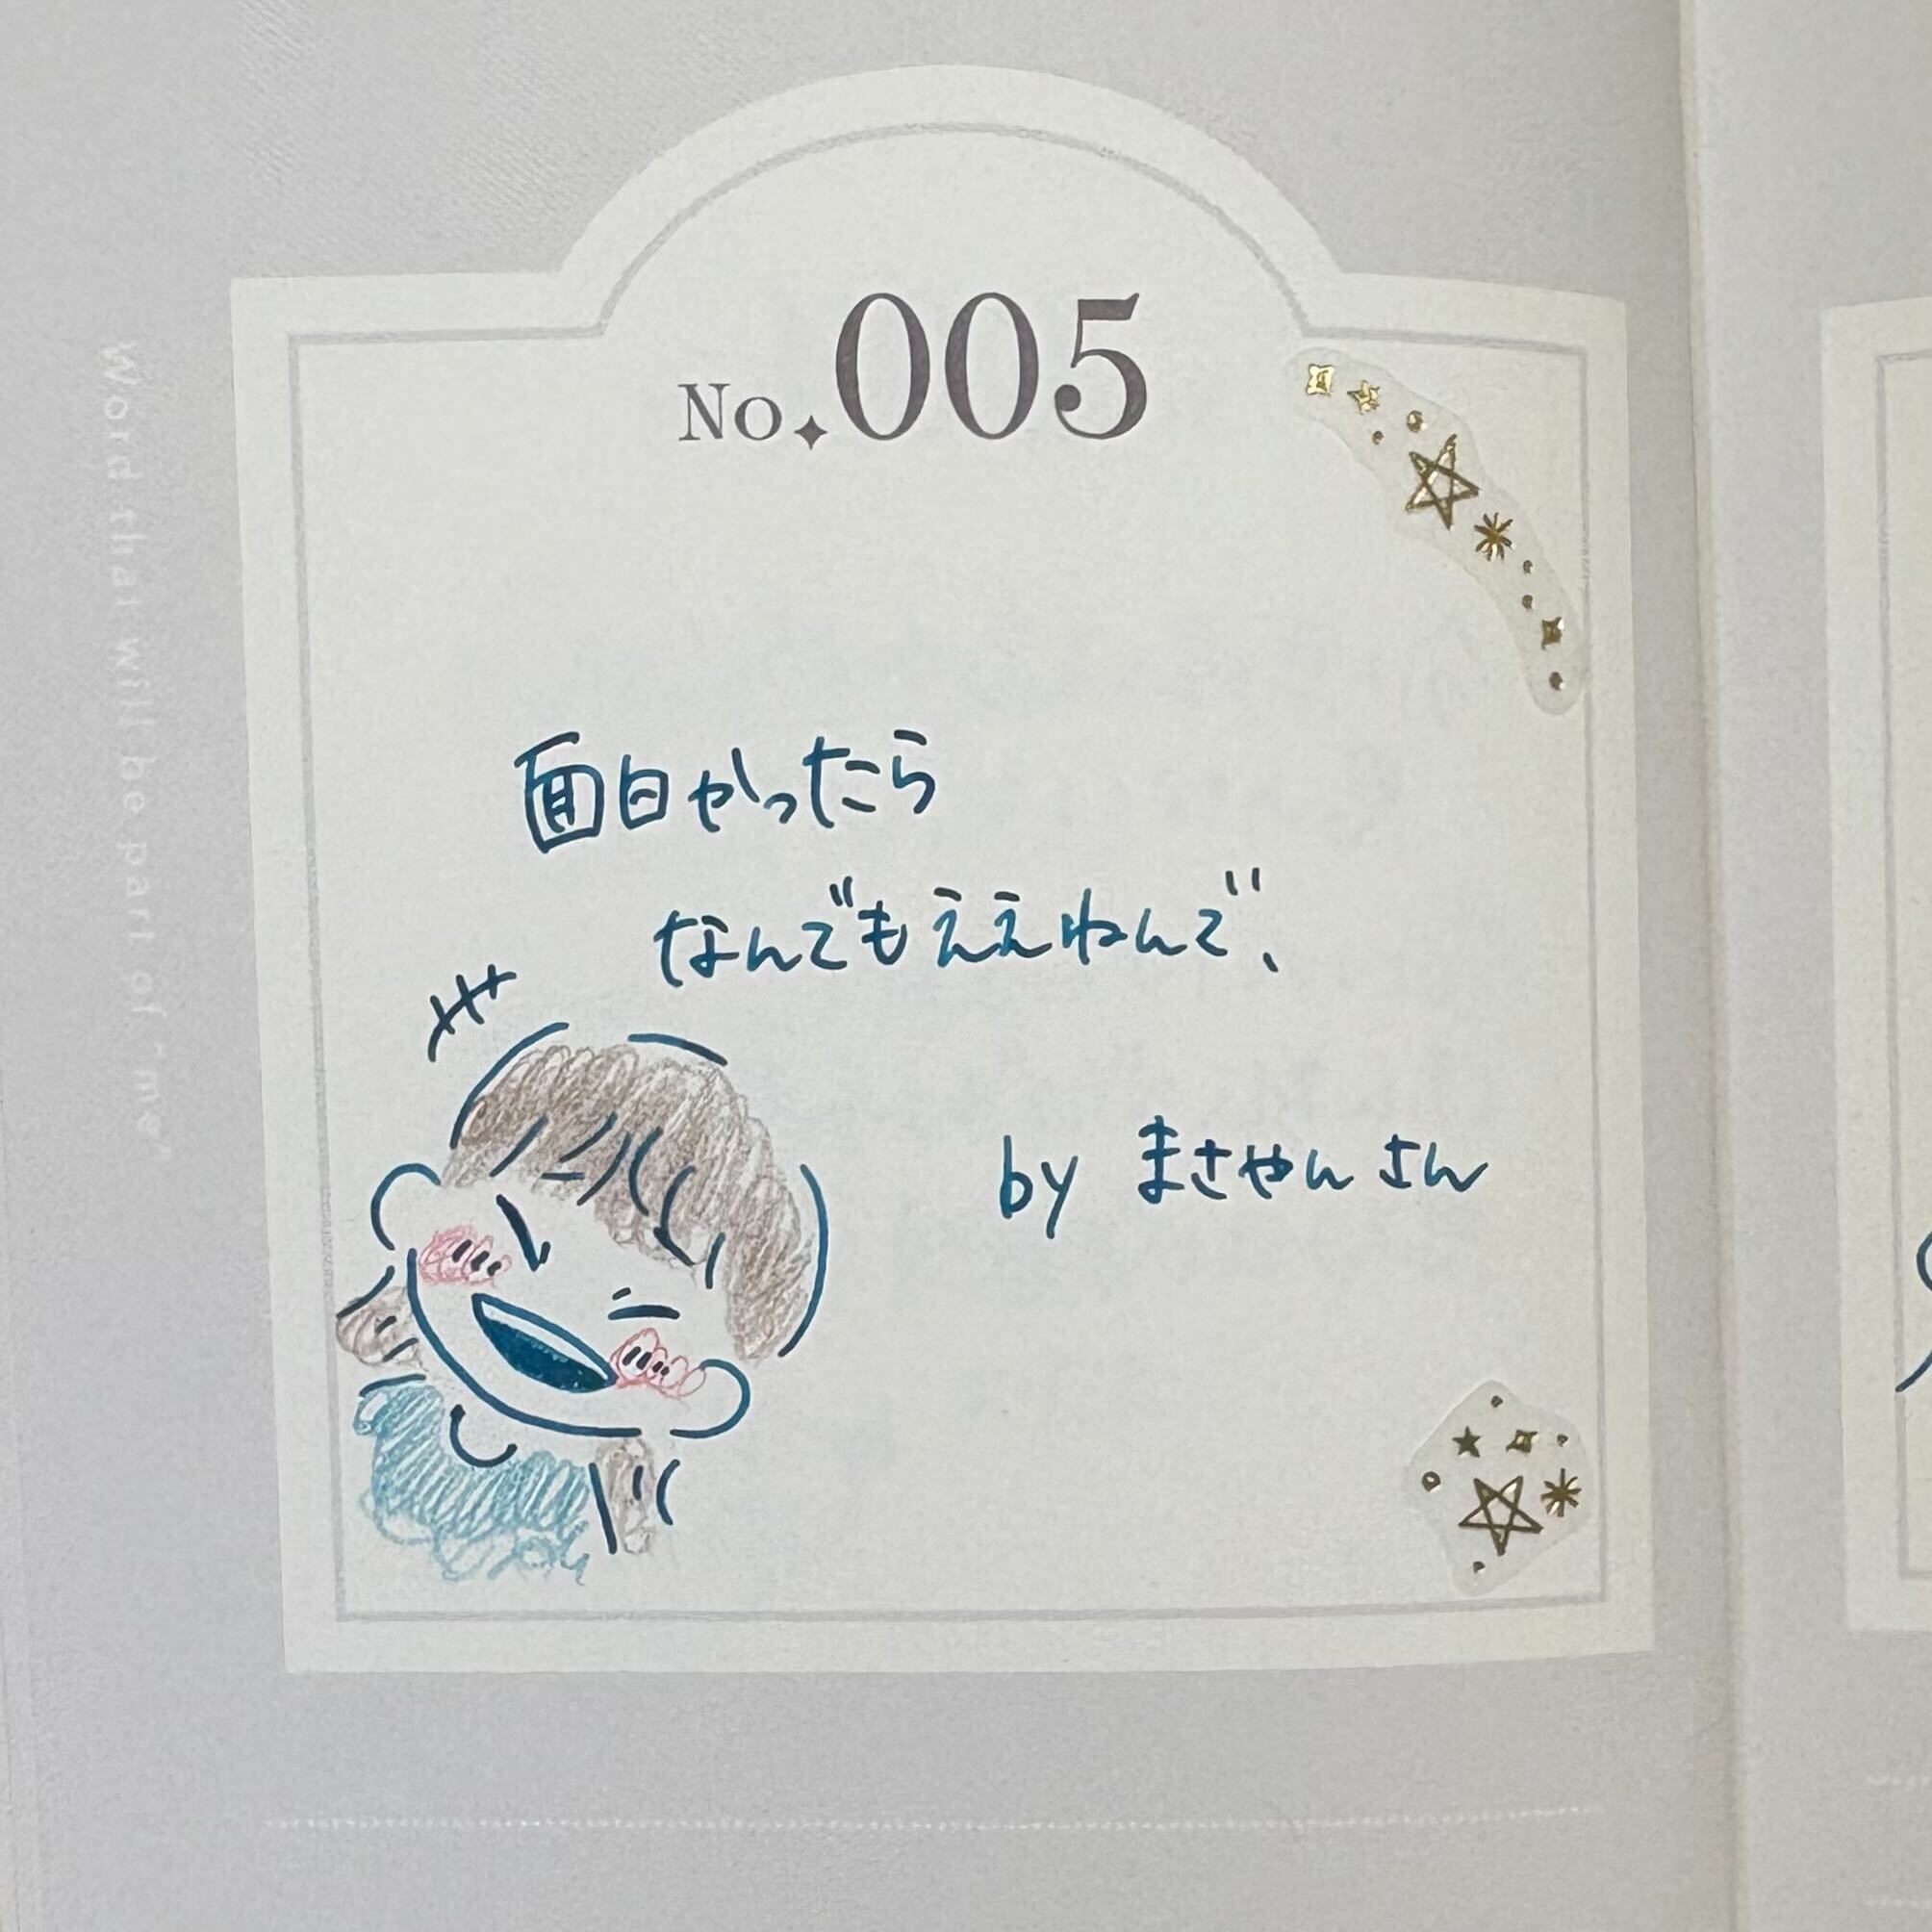 No.005
面白かったら
なんでもええねんで、
by まさやんさん
Word that will be part of "me"